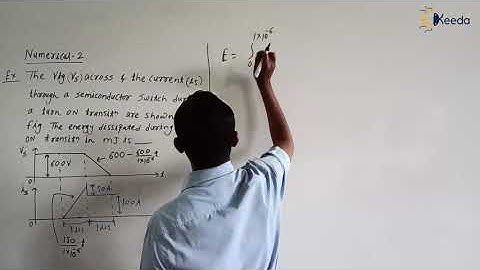 Ekeeda
Numerical-2
Ex The Vtg (Vs) across & the current (is)
through a semiconductor switch during
a turn ON transitn are shown
fig The energy dissipated during
ON transitn in mJ is
E = ∫ 1×10⁻⁶
0
Vs
600V
600 - 600/1×10⁻⁶ t
0
t
is
50A
100A
0
1μs 1μs
150/1×10⁻⁶ t